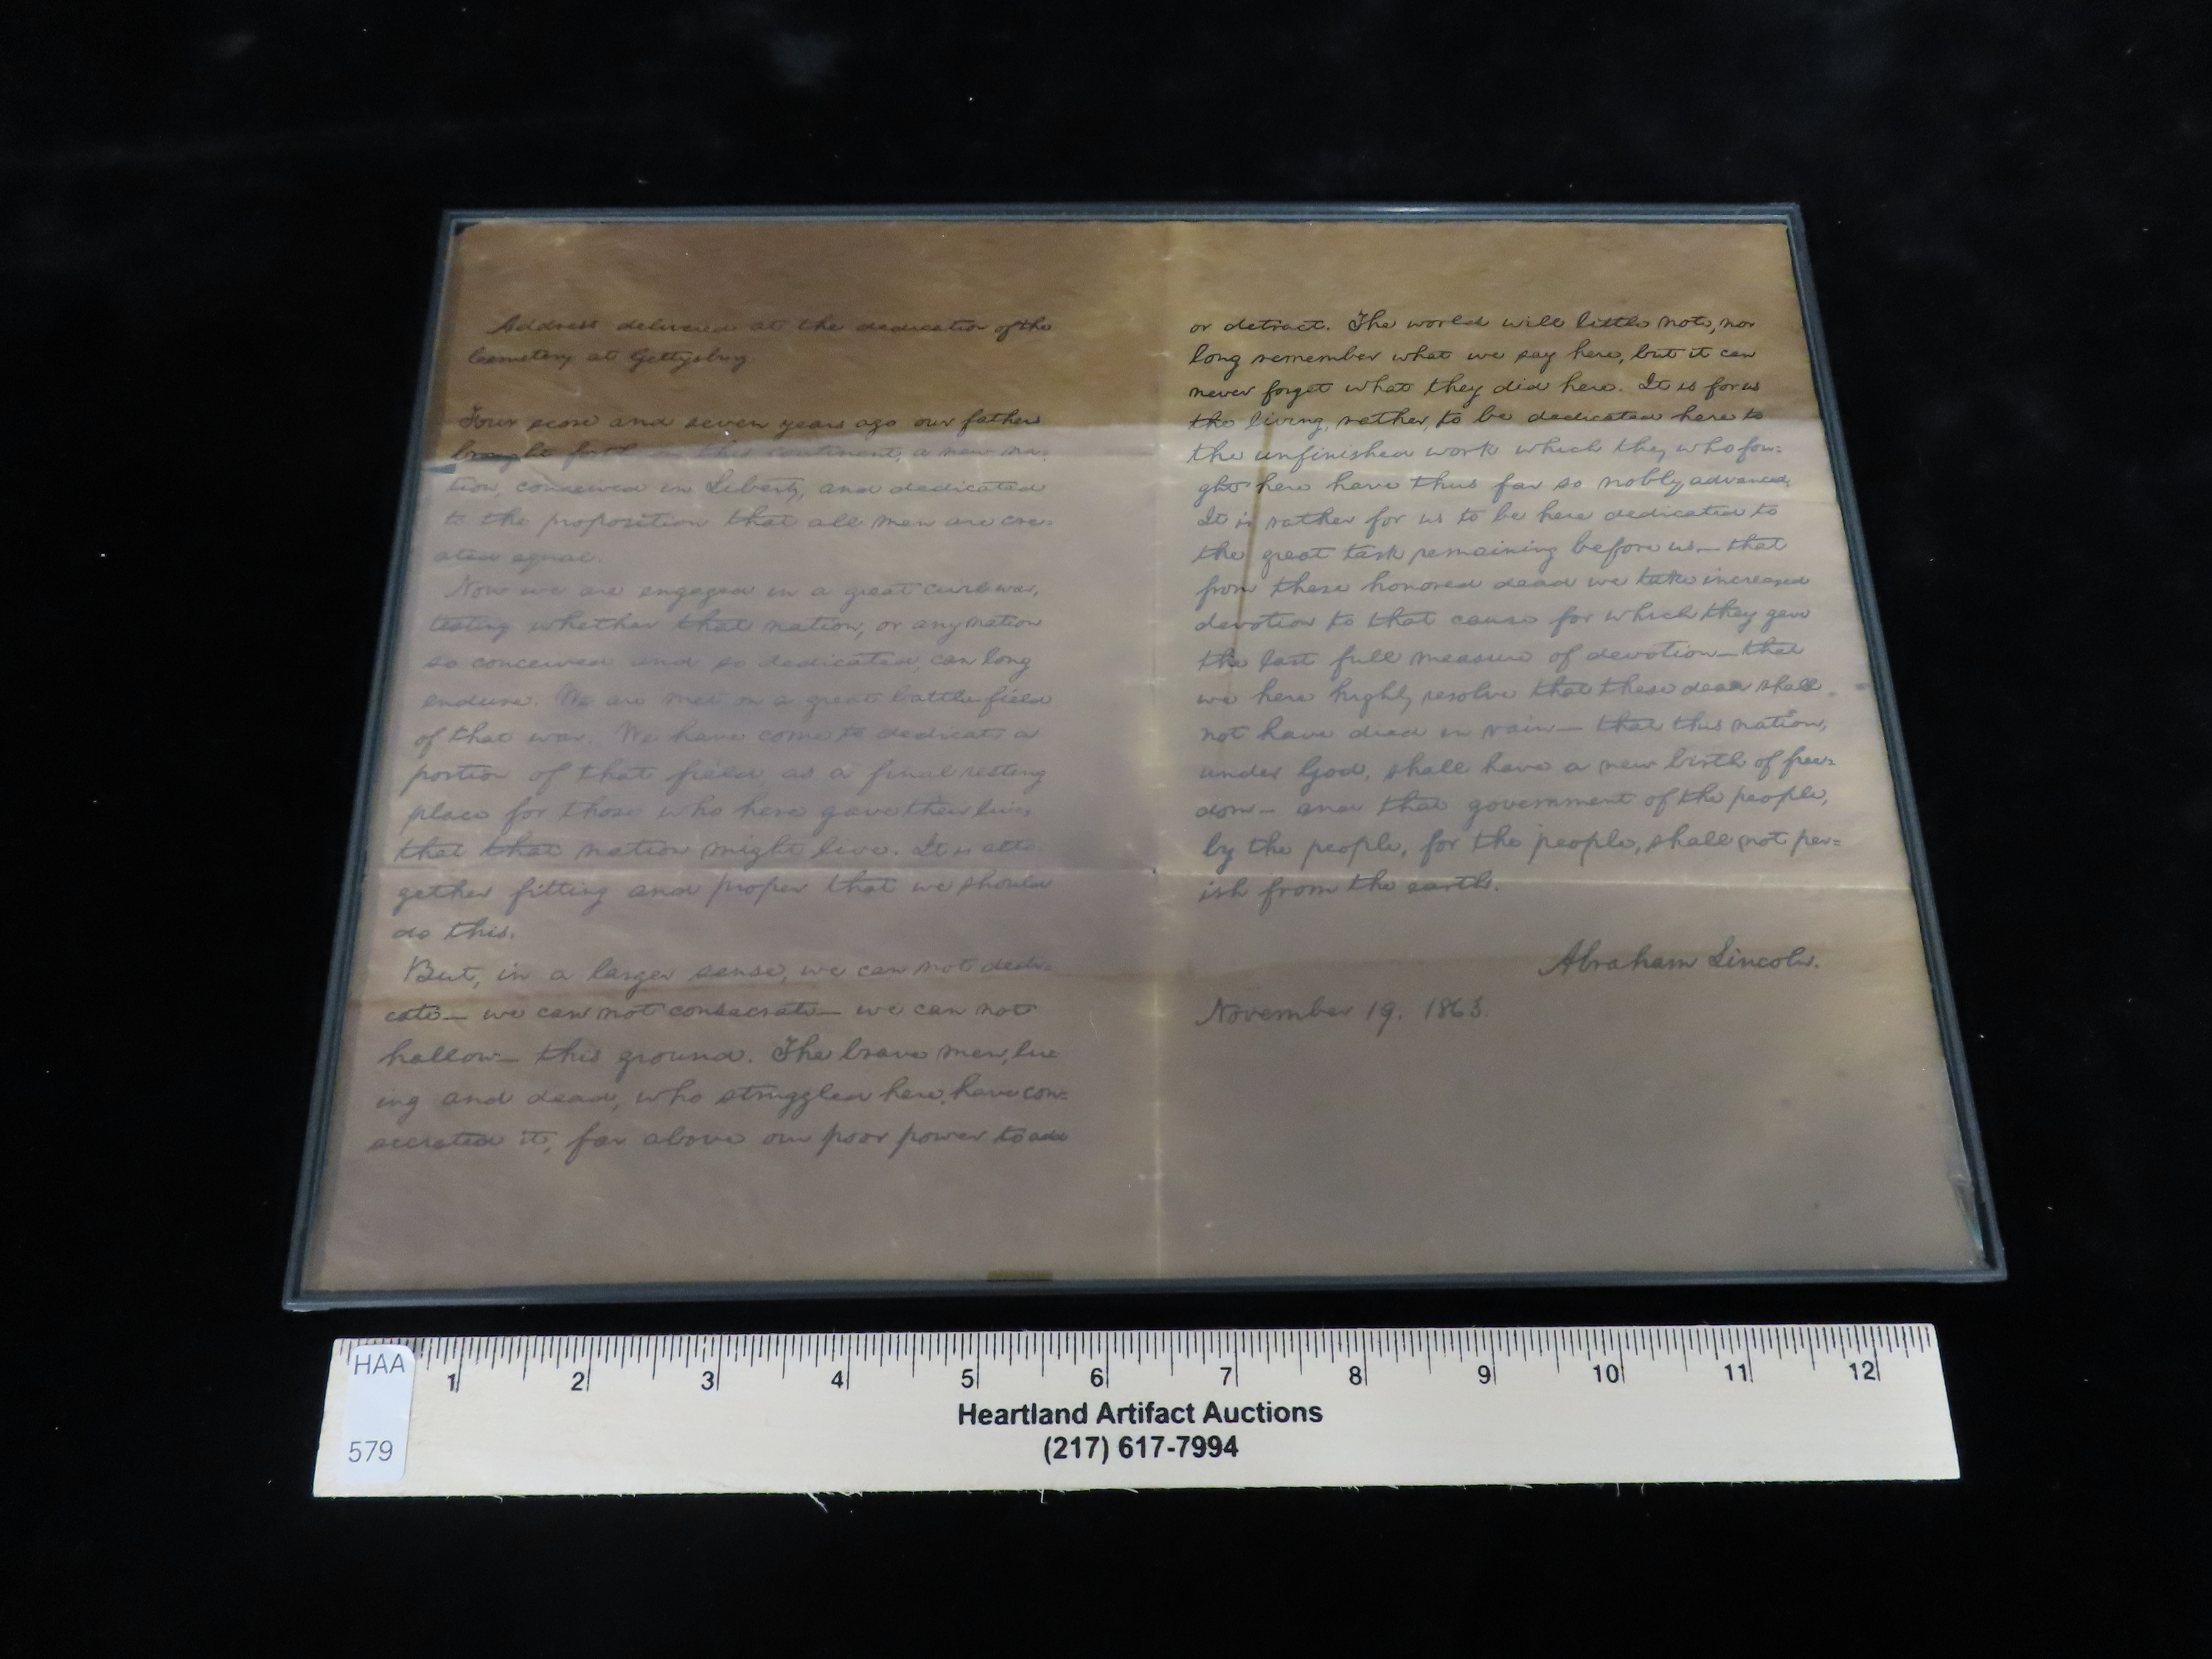 Address delivered at the dedication of the
Cemetery at Gettysburg.
Four score and seven years ago our fathers
brought forth on this continent, a new na-
tion, conceived in Liberty, and dedicated
to the proposition that all men are cre-
ated equal.
Now we are engaged in a great civil war,
testing whether that nation, or any nation
so conceived and so dedicated, can long
endure. We are met on a great battle-field
of that war. We have come to dedicate a
portion of that field, as a final resting
place for those who here gave their lives
that that nation might live. It is alto-
gether fitting and proper that we should
do this.
But, in a larger sense, we can not dedi-
cate— we can not consecrate— we can not
hallow— this ground. The brave men, liv-
ing and dead, who struggled here, have con-
secrated it, far above our poor power to add
or detract. The world will little note, nor
long remember what we say here, but it can
never forget what they did here. It is for us
the living, rather, to be dedicated here to
the unfinished work which they who fou-
ght here have thus far so nobly advanced.
It is rather for us to be here dedicated to
the great task remaining before us— that
from these honored dead we take increased
devotion to that cause for which they gave
the last full measure of devotion— that
we here highly resolve that these dead shall
not have died in vain— that this nation,
under God, shall have a new birth of free-
dom— and that government of the people,
by the people, for the people, shall not per-
ish from the earth.
Abraham Lincoln.
November 19. 1863.
HAA
579
1 2 3 4 5 6 7 8 9 10 11 12
Heartland Artifact Auctions
(217) 617-7994